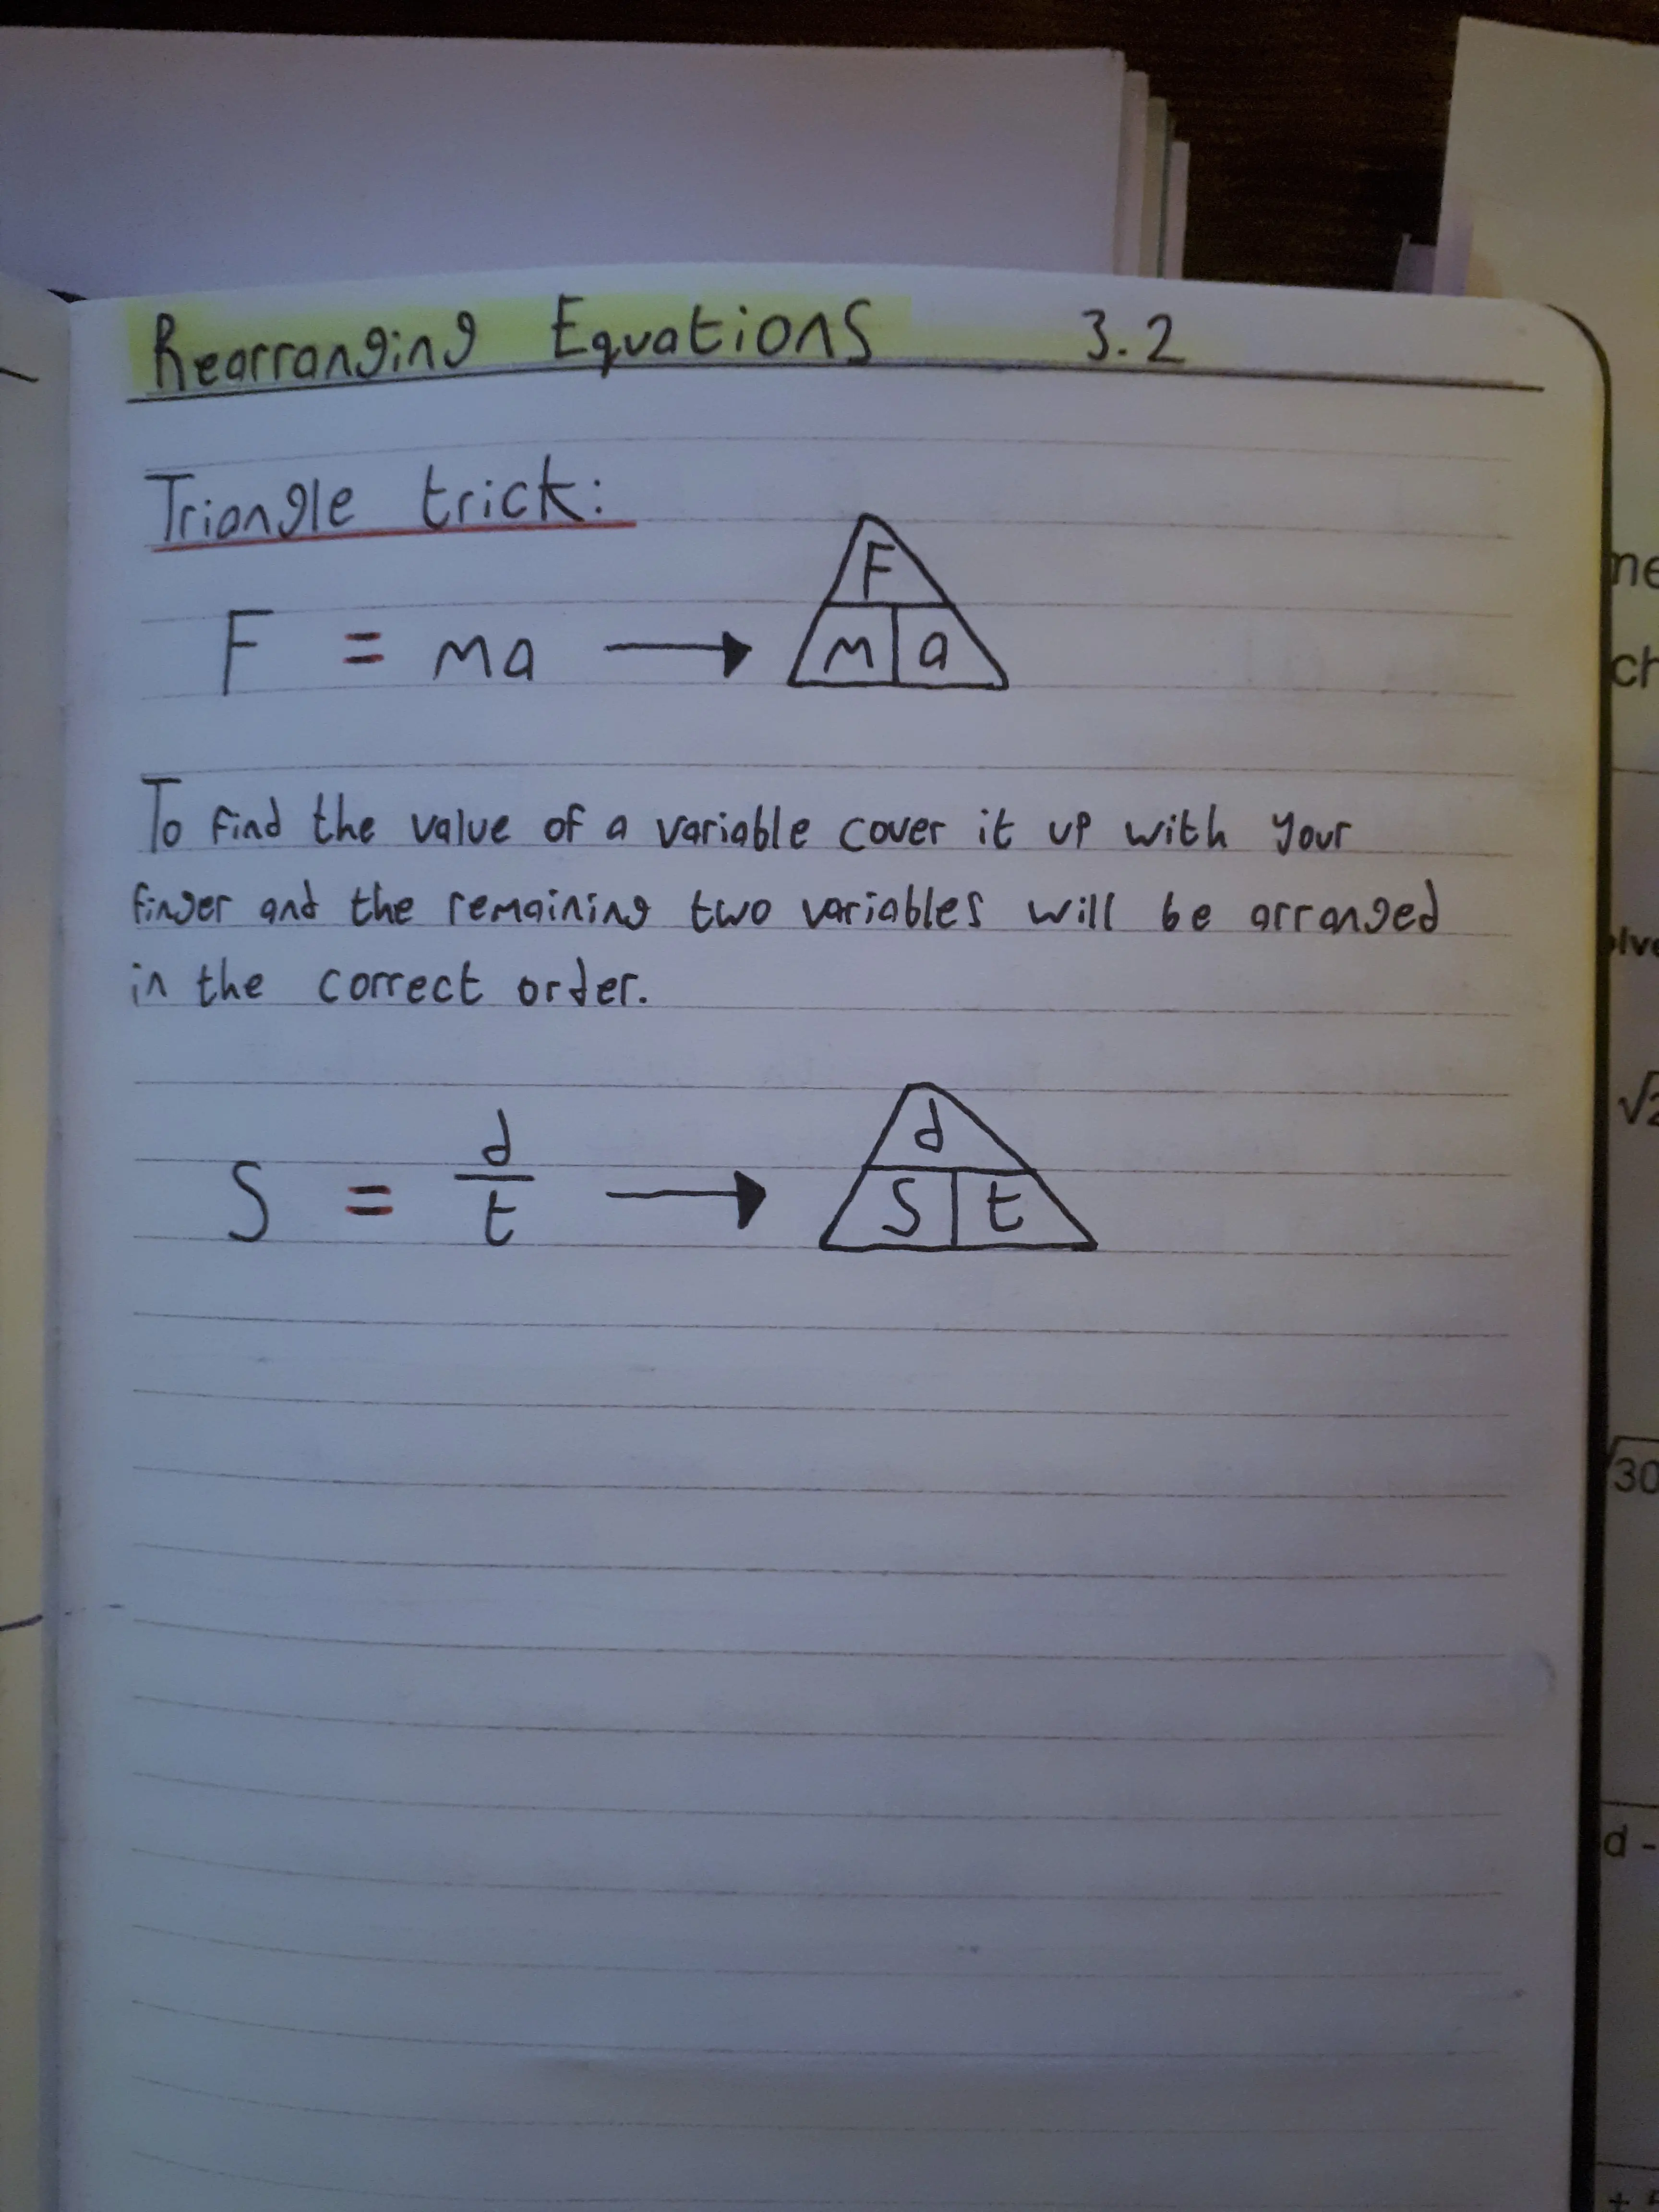 Rearranging Equations 3.2
Triangle trick:
F
F = ma → m a
To find the value of a variable cover it up with your
finger and the remaining two variables will be arranged
in the correct order.
d
S = d/t → S t
ne
ch
olve
√2
√30
d -